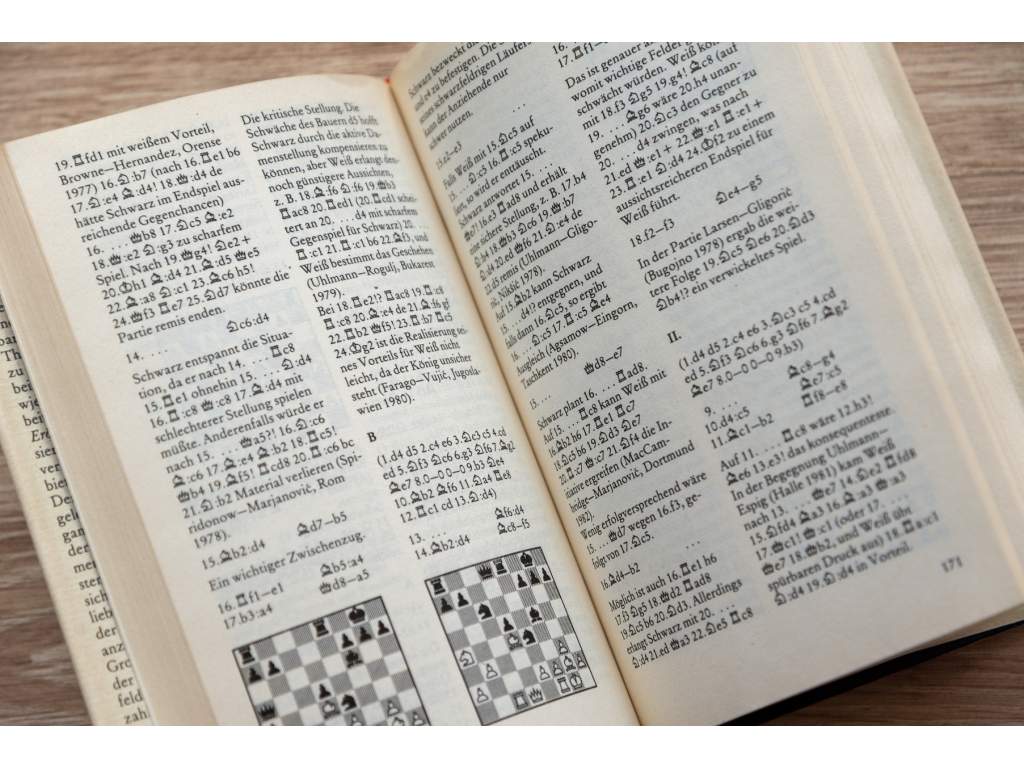 19.♖fd1 mit weißem Vorteil,
Browne—Hernandez, Orense
1977) 16.♘:b7 (nach 16.♖e1 b6
17.♘:e4 ♗:d4! 18.♕:d4 de
hätte Schwarz im Endspiel aus-
reichende Gegenchancen)
16. ... ♕b8 17.♘c5 ♗:e2
18.♕:e2 ♘:g3 zu scharfem
Spiel. Nach 19.♕g4! ♘e2+
20.♔h1 ♗:d4 21.♗:d5 ♕e5
22.♗:a8 ♘:c1 23.♗c6 h5!
24.♕f3 ♕e7 25.♘d7 könnte die
Partie remis enden.
14. .... ♘c6:d4
Schwarz entspannt die Situa-
tion, da er nach 14. .... ♖c8
15.♖e1 ohnehin 15. .... ♘:d4
16.♖:c8 ♕:c8 17.♗:d4 mit
schlechterer Stellung spielen
müßte. Anderenfalls würde er
nach 15. .... ♕a5?! 16.♘:c6
♗:c6 17.♗:e4 ♗:b2 18.♖c5!
♕b4 19.♗f5! ♖cd8 20.♖:c6 bc
21.♘:b2 Material verlieren (Spi-
ridonow—Marjanović, Rom
1978).
15.♗b2:d4 ♗d7—b5
Ein wichtiger Zwischenzug.
16.♖f1—e1 ♗b5:a4
17.b3:a4 ♕d8—a5
Die kritische Stellung. Die
Schwäche des Bauern d5 hofft
Schwarz durch die aktive Da-
menstellung kompensieren zu
können, aber Weiß erlangt den-
noch günstigere Aussichten,
z. B. 18.♗:f6 ♘:f6 19.♕b3
♖ac8 20.♖ed1 (20.♖cd1 schei-
tert an 20. ... d4 mit scharfem
Gegenspiel für Schwarz) 20. ...
♖:c1 21.♖:c1 b6 22.♗f3, und
Weiß bestimmt das Geschehen
(Uhlmann—Rogulj, Bukarest
1979).
Bei 18.♖e2!? ♖ac8 19.♖:c8
♖:c8 20.♗:e4 de 21.♗:f6 gf
22.♖b2 ♕f5! 23.♖:b7 ♖c5
24.♔g2 ist die Realisierung sei-
nes Vorteils für Weiß nicht
leicht, da der König unsicher
steht (Farago—Vujić, Jugosla-
wien 1980).
B
(1.d4 d5 2.c4 e6 3.♘c3 c5 4.cd
ed 5.♘f3 ♘c6 6.g3 ♘f6 7.♗g2
♗e7 8.0—0 0—0 9.b3 ♘e4
10.♗b2 ♗f6 11.♘a4 ♖e8
12.♖c1 cd 13.♘:d4)
13. .... ♗f6:d4
14.♗b2:d4 ♗c8—f5
Schwarz bezweckt
und e4 zu befestigen. Die
seines schwarzfeldrigen Läufers
kann der Anziehende nur
schwer nutzen.
15.f2—f3
Falls Weiß mit 15.♘c5 auf
15. ... ♘:c5 16.♖:c5 speku-
liert, so wird er enttäuscht.
Schwarz antwortet 15. ....
♕e7! 16.e3 ♖ad8 und erhält
eine sichere Stellung, z. B. 17.b4
♘:b4 18.♕b3 ♘c6 19.♕:b7
♘:d4 20.ed ♕f6 21.♘:e4 de
22.d5 remis (Uhlmann—Gligo-
rić, Nikšić 1978).
Auf 15.♗b2 kann Schwarz
15. ... d4!? entgegnen, und
falls dann 16.♘c5, so ergibt
16. ... ♘:c5 17.♖:c5 ♗e4
Ausgleich (Agsamow—Eingorn,
Taschkent 1980).
15. .... ♕d8—e7
Schwarz plant 16. .... ♖ad8.
Auf 15. ... ♖c8 kann Weiß mit
16.♗b2 h6 17.♖e1 ♖c7
18.♘c5 b6 19.♘d3 ♘e7
20.♖:c7 ♕:c7 21.♘f4 die In-
itiative ergreifen (MacCam-
bridge—Marjanović, Dortmund
1982).
Wenig erfolgversprechend wäre
15. ... ♕d7 wegen 16.f3, ge-
folgt von 17.♘c5.
16.♗d4—b2 ...
Möglich ist auch 16.♖e1 h6
17.f3 ♘g5 18.♕d2 ♖ad8
19.♘c5 b6 20.♘d3. Allerdings
erlangt Schwarz mit 20. ...
♘:d4 21.ed ♕a3 22.♘e5 ♖c8
16.
17.♖f1—
Das ist genauer
womit wichtige Felder
schwächt würden. Weiß
mit 18.f3 ♘g5 19.g4! ♗c8 (auf
19. ... ♗g6 wäre 20.h4 unan-
genehm) 20.♘c3 den Gegner zu
20. ... d4 zwingen, was nach
21.ed ♕:e1+ 22.♕:e1 ♖:e1+
23.♖:e1 ♘:d4 24.♔f2 zu einem
aussichtsreicheren Endspiel für
Weiß führt.
18.f2—f3 ♘e4—g5
In der Partie Larsen—Gligorić
(Bugojno 1978) ergab die wei-
tere Folge 19.♘c5 ♘e6 20.♘d3
♘b4!? ein verwickeltes Spiel.
II.
(1.d4 d5 2.c4 e6 3.♘c3 c5 4.cd
ed 5.♘f3 ♘c6 6.g3 ♘f6 7.♗g2
♗e7 8.0—0 0—0 9.b3)
9. .... ♗c8—g4
10.d4:c5 ♗e7:c5
11.♗c1—b2 ♖f8—e8
Auf 11. ... ♖c8 wäre 12.h3!
♗e6 13.e3! das konsequenteste.
In der Begegnung Uhlmann—
Espig (Halle 1981) kam Weiß
nach 13. ... ♕e7 14.♘e2 ♖fd8
15.♘fd4 ♗a3 16.♗:a3 ♕:a3
17.♕c1! ♕:c1 (oder 17. ...
♕e7 18.♕b2, und Weiß übt
spürbaren Druck aus) 18.♖a:c1
♘:d4 19.♘:d4 in Vorteil.
171